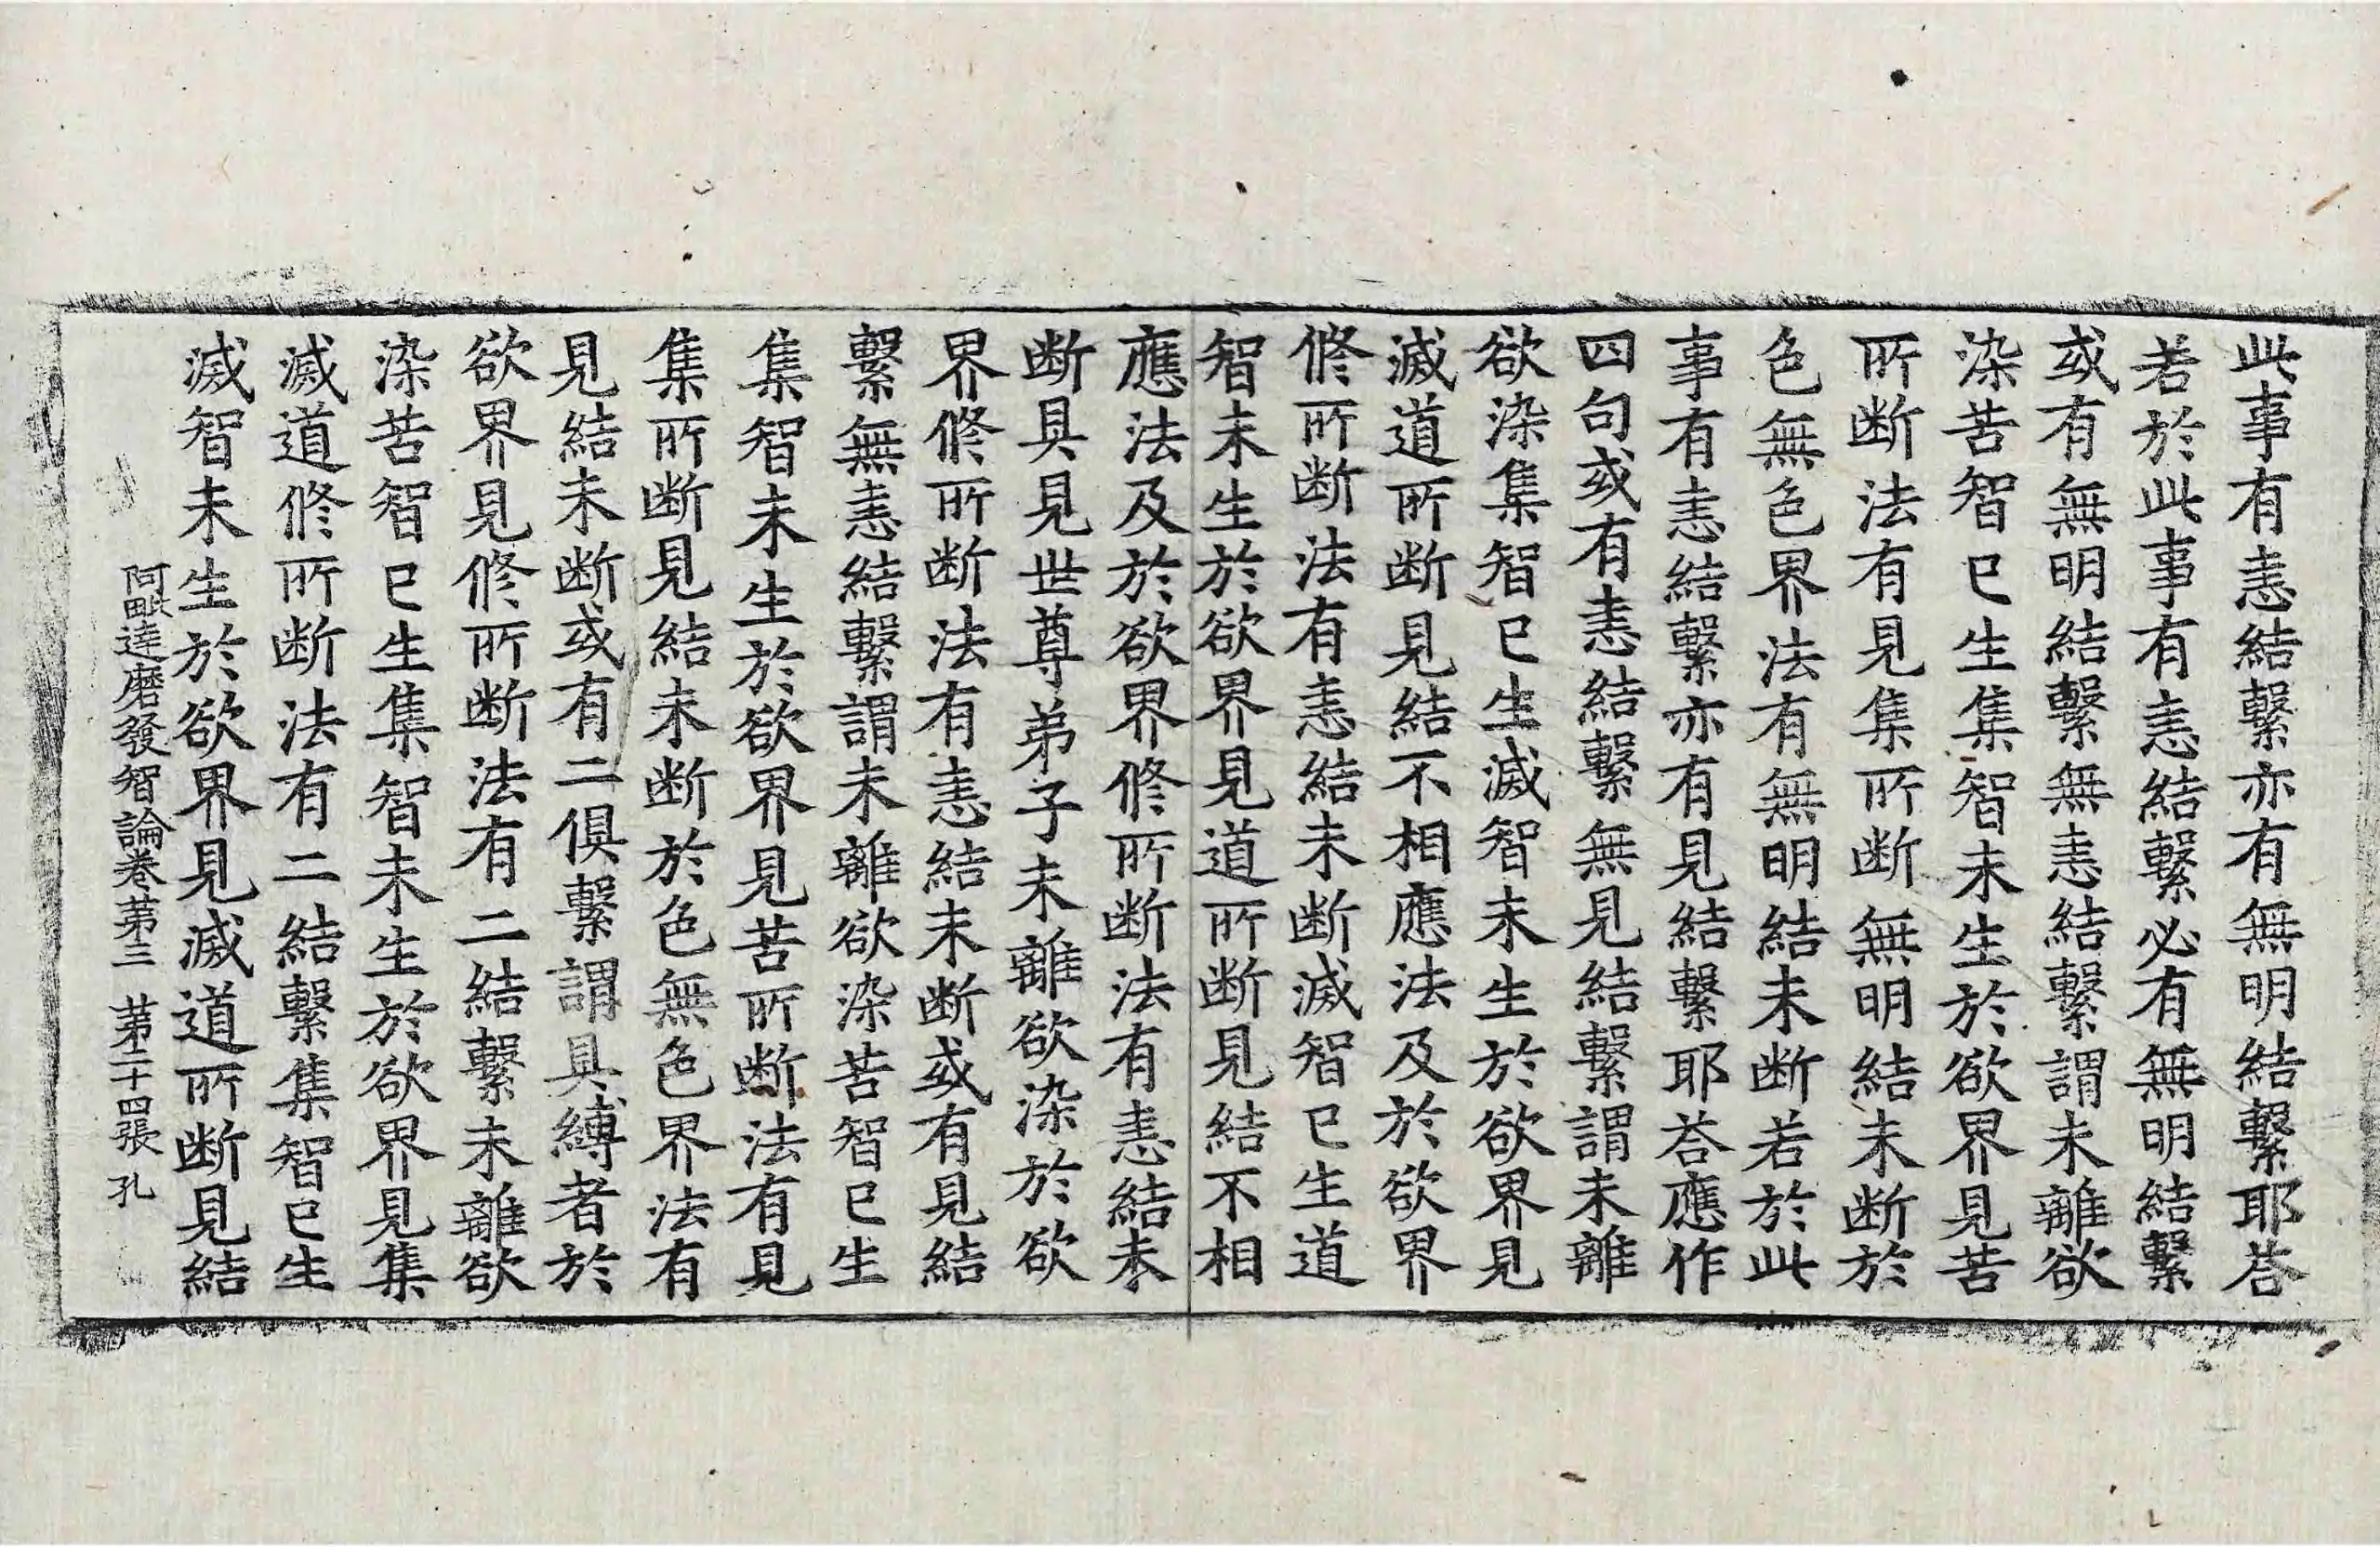 此事有恚結繫亦有無明結繫耶荅
若於此事有恚結繫必有無明結繫
或有無明結繫無恚結繫謂未離欲
染苦智已生集智未生於欲界見苦
所断法有見集所断無明結未断於
色無色界法有無明結未断若於此
事有恚結繫亦有見結繫耶荅應作
四句或有恚結繫無見結繫謂未離
欲染集智已生滅智未生於欲界見
滅道所断見結不相應法及於欲界
修所断法有恚結未断滅智已生道
智未生於欲界見道所断見結不相
應法及於欲界修所断法有恚結未
断具見世尊弟子未離欲染於欲
界修所断法有恚結未断或有見結
繫無恚結繫謂未離欲染苦智已生
集智未生於欲界見苦所断法有見
集所断見結未断於色無色界法有
見結未断或有二俱繫謂具縛者於
欲界見修所断法有二結繫未離欲
染苦智已生集智未生於欲界見集
滅道修所断法有二結繫集智已生
滅智未生於欲界見滅道所断見結
阿毗達磨發智論卷第三 第二十四張 孔